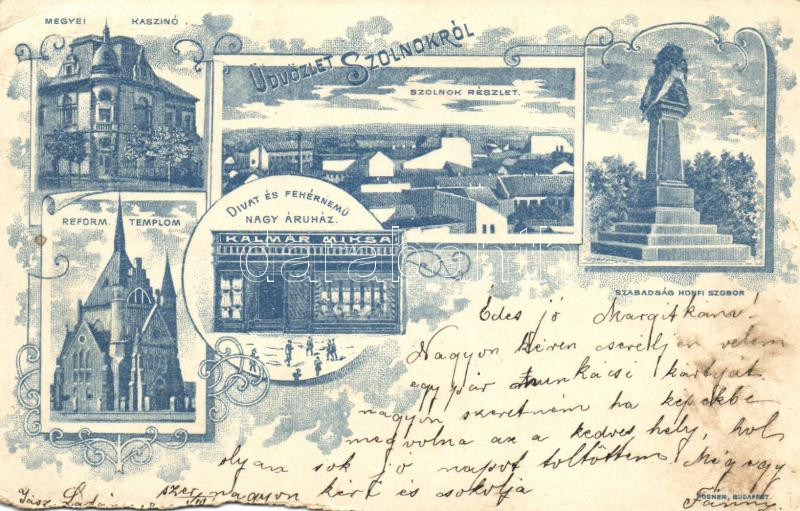 MEGYEI KASZINÓ
ÜDVÖZLET SZOLNOKRÓL
SZOLNOK RÉSZLET.
REFORM. TEMPLOM
DIVAT ÉS FEHÉRNEMŰ
NAGY ÁRUHÁZ.
KALMÁR MIKSA
darabanth
SZABADSÁG HONFI SZOBOR
Édes jó Margitkám!
Nagyon kérem cseréljen velem
egy pár munkácsi kártyát
nagyon szeretném ha képekbe
megvolna az a kedves hely, hol
olyan sok jó napot töltöttem. Még egy
szer nagyon kéri és csókolja
Fánny
Jász Ladány
POSNER, BUDAPEST.